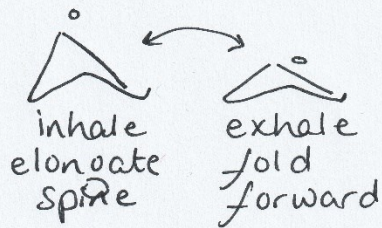 inhale
elongate
spine
exhale
fold
forward